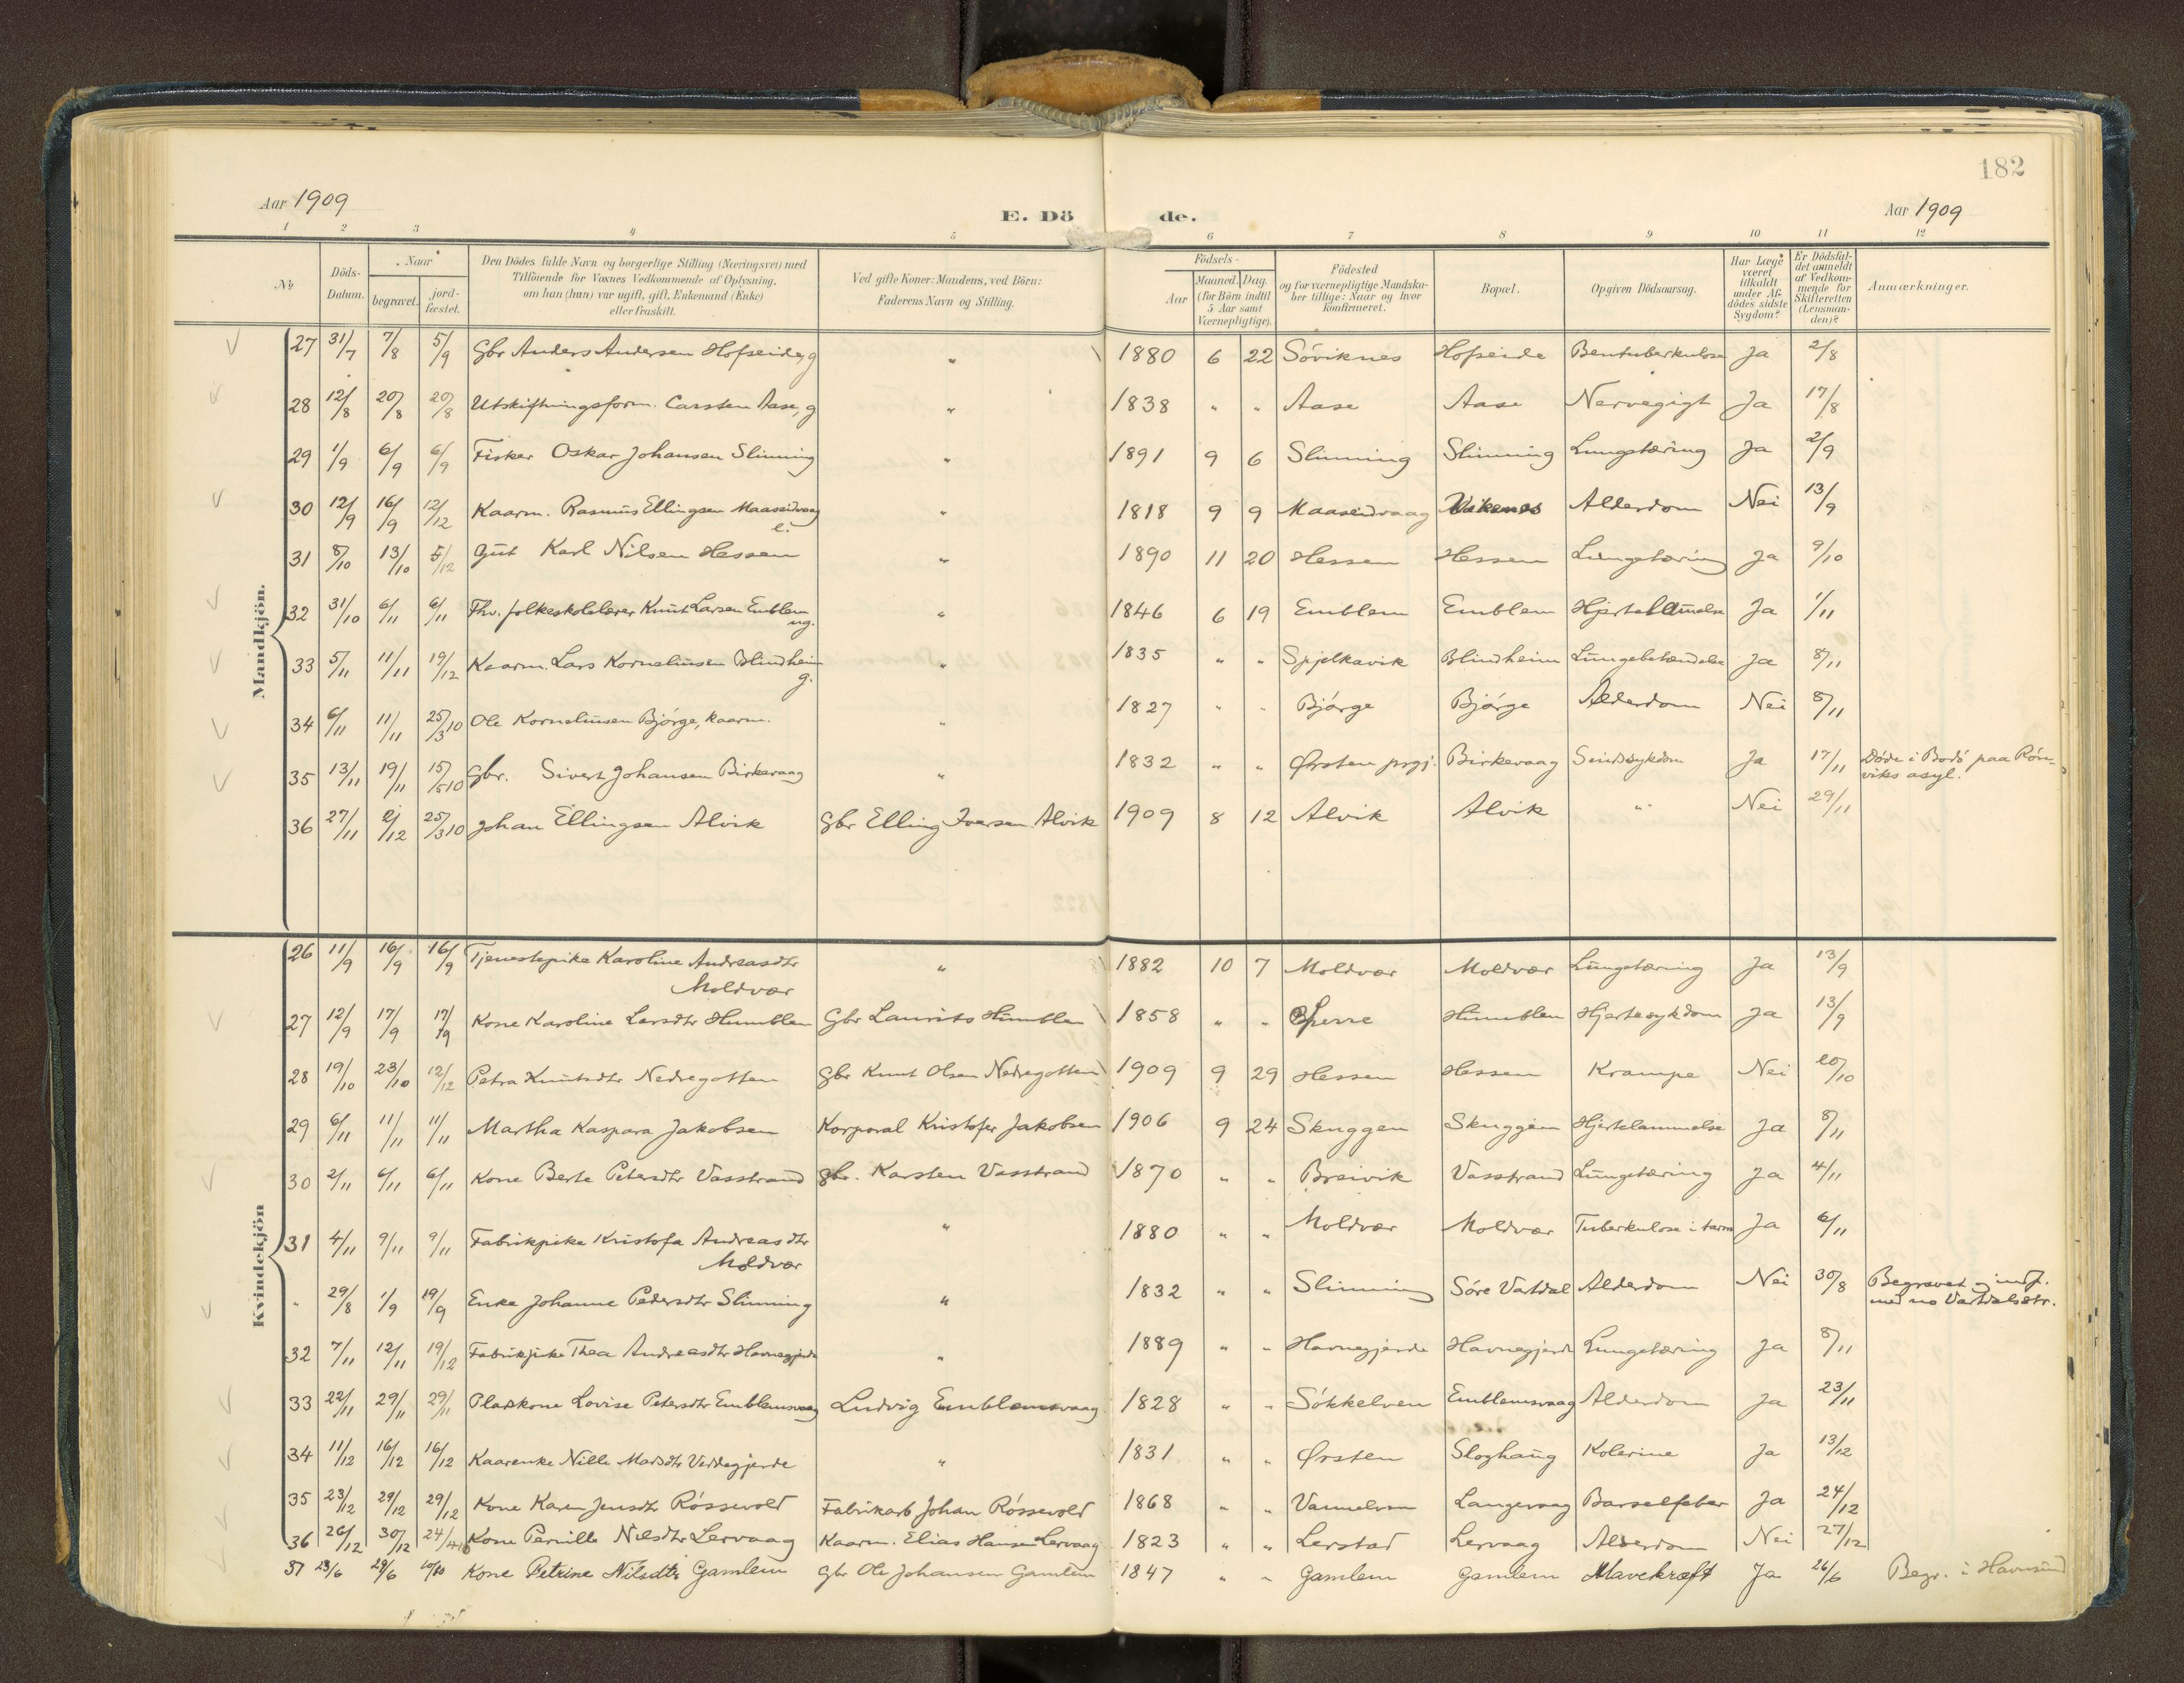 182
Aar 1909
E. Dö de.
Aar 1909
1 2 3 4 5 6 7 8 9 10 11 12
№
Döds-Datum.
Naar
begravet.
jord-fæstet.
Den Dödes fulde Navn og borgerlige Stilling (Næringsvei) med
Tilföiende for Voxnes Vedkommende af Oplysning,
om han (hun) var ugift, gift, Enkemand (Enke)
eller fraskilt.
Ved gifte Koner: Mandens, ved Börn:
Faderens Navn og Stilling.
Födsels-
Aar
Maaned. Dag.
(for Börn indtil
5 Aar samt
Værnepligtige).
Födested
og for værnepligtige Mandska-
ber tillige: Naar og hvor
konfirmeret.
Bopæl.
Opgiven Dödsaarsag.
Har Læge
været
tilkaldt
under Af-
dödes sidste
Sygdom?
Er Dödsfal-
det anmeldt
af Vedkom-
mende for
Skifteretten
(Lensman-
den)?
Anmærkninger.
Mandkjön.
27 31/7 7/8 5/9 Gbr Anders Andersen Hofseide, g " 1880 6 22 Söviknes Hofseide Bentuberkulose Ja 2/8
28 12/8 20/8 20/8 Utskiftningsform. Carsten Aase, g " 1838 " " Aase Aase Nervegigt Ja 17/8
29 1/9 6/9 6/9 Fisker Oskar Johansen Slinning " 1891 9 6 Slinning Slinning Lungetæring Ja 2/9
30 12/9 16/9 12/12 Kaarm. Rasmus Ellingsen Maaseidvaag e. " 1818 9 9 Maaseidvaag Vikenes Alderdom Nei 13/9
31 8/10 13/10 5/12 Gut Karl Nilsen Hessen " 1890 11 20 Hessen Hessen Lungetæring Ja 9/10
32 31/10 6/11 6/11 Fhv. folkeskolelærer Knut Larsen Emblem ug. " 1846 6 19 Emblem Emblem Hjertelammelse Ja 1/11
33 5/11 11/11 19/12 Kaarm. Lars Kornelinsen Blindheim g. " 1835 " " Spjelkavik Blindheim Lungebetændelse Ja 8/11
34 6/11 11/11 25/3 10 Ole Kornelinsen Bjørge, kaarm. " 1827 " " Bjørge Bjørge Alderdom Nei 8/11
35 13/11 19/11 15/5 10 Gbr. Sivert Johansen Birkevaag " 1832 " " Ørsten prgj. Birkevaag Sindssykdom Ja 17/11 Døde i Bodö paa Rön-
viks asyl.
36 27/11 2/12 25/3 10 Johan Ellingsen Alvik Gbr Elling Iversen Alvik 1909 8 12 Alvik Alvik " Nei 29/11
Kvindekjön
26 11/9 16/9 16/9 Tjenestepike Karoline Andreasdtr
Moldvær " 1882 10 7 Moldvær Moldvær Lungetæring Ja 13/9
27 12/9 17/9 17/9 Kone Karoline Larsdtr Humblen Gbr Laurits Humblen 1858 " " Sperre Humblen Hjertesykdom Ja 13/9
28 19/10 23/10 12/12 Petra Knutsdtr Nedregotten Gbr Knut Olsen Nedregotten 1909 9 29 Hessen Hessen Krampe Nei 20/10
29 6/11 11/11 11/11 Martha Kaspara Jakobsen Korporal Kristofer Jakobsen 1906 9 24 Skuggen Skuggen Hjertelammelse Ja 8/11
30 2/11 6/11 6/11 Kone Berte Petersdtr Vasstrand Gbr. Karsten Vasstrand 1870 " " Breivik Vasstrand Lungetæring Ja 4/11
31 4/11 9/11 9/11 Fabrikpike Kristofa Andreasdtr
Moldvær " 1880 " " Moldvær Moldvær Tuberkulose i tarm Ja 6/11
" 29/8 1/9 19/9 Enke Johanne Pedersdtr Slinning " 1832 " " Slinning Söre Vartdal Alderdom Nei 30/8 Begravet og indf.
med no Vartdalsstr.
32 7/11 12/11 19/12 Fabrikpike Thea Andreasdtr Havnegjerde " 1889 " " Havnegjerde Havnegjerde Lungetæring Ja 8/11
33 22/11 29/11 29/11 Pladskone Lovise Petersdtr Emblemsvaag Ludvig Emblemsvaag 1828 " " Sökkelven Emblemsvaag Alderdom Ja 23/11
34 11/12 16/12 16/12 Kaarenke Nille Madsdtr Veddegjerde " 1831 " " Ørsten Sloghaug Kolerine Ja 13/12
35 23/12 29/12 29/12 Kone Karen Jensdtr Rössevold Fabrikarb Johan Rössevold 1868 " " Vannelven Langevaag Barselfeber Ja 24/12
36 26/12 30/12 24/4 10 Kone Pernille Nilsdtr Lervaag Kaarm. Elias Hansen Lervaag 1823 " " Lerstad Lervaag Alderdom Nei 27/12
37 23/6 29/6 10/10 Kone Petrine Nilsdtr Gamlem Gbr Ole Johansen Gamlem 1847 " " Gamlem Gamlem Mavekræft Ja 26/6 Begr. i Havnsund